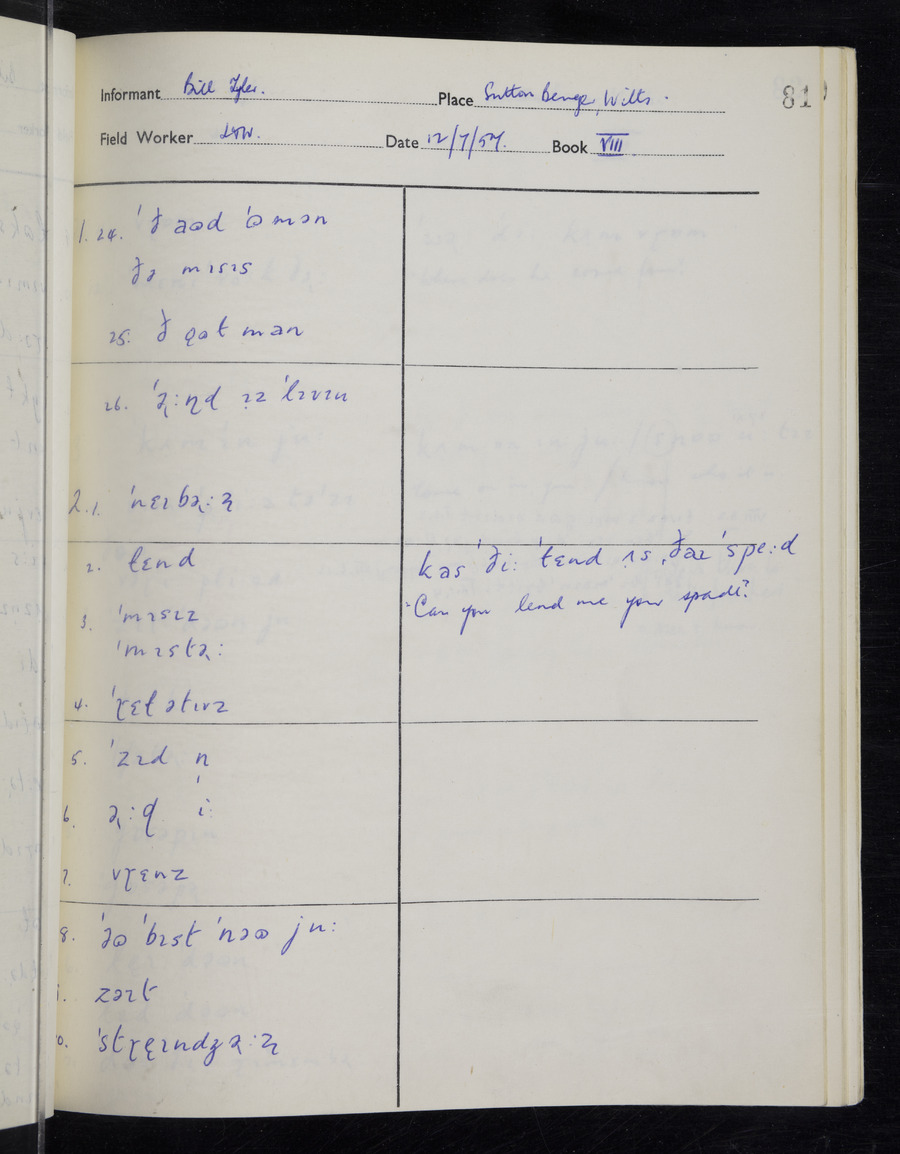 Informant Bill Tyler. Place Sutton Benger, Wilts.
81
Field Worker Date 12/7/57. Book VIII
1. 24. ˈð aɷd ˈɷmən
ðə mɪsɪs
25. ð man
26. ˈɚ:ɳd
2. 1. ˈnɛɪbɚ:z
2. tɛnd
kas ˈði: ˈtɛnd ˌðaɪ ˈspe:d
"Can you lend me your spade?
3. ˈmɪsɪz
ˈmɪstɚ:
4. ˈɽɛlətɪvz
5. ˈzɪd n
6. ɚ:d i:
7. vɽɛnz
8. ˈəɷ ˈbɪst ˈnəɷ ju:
9. zəɪt
10. ˈstɽɛɪndʒɚ:z